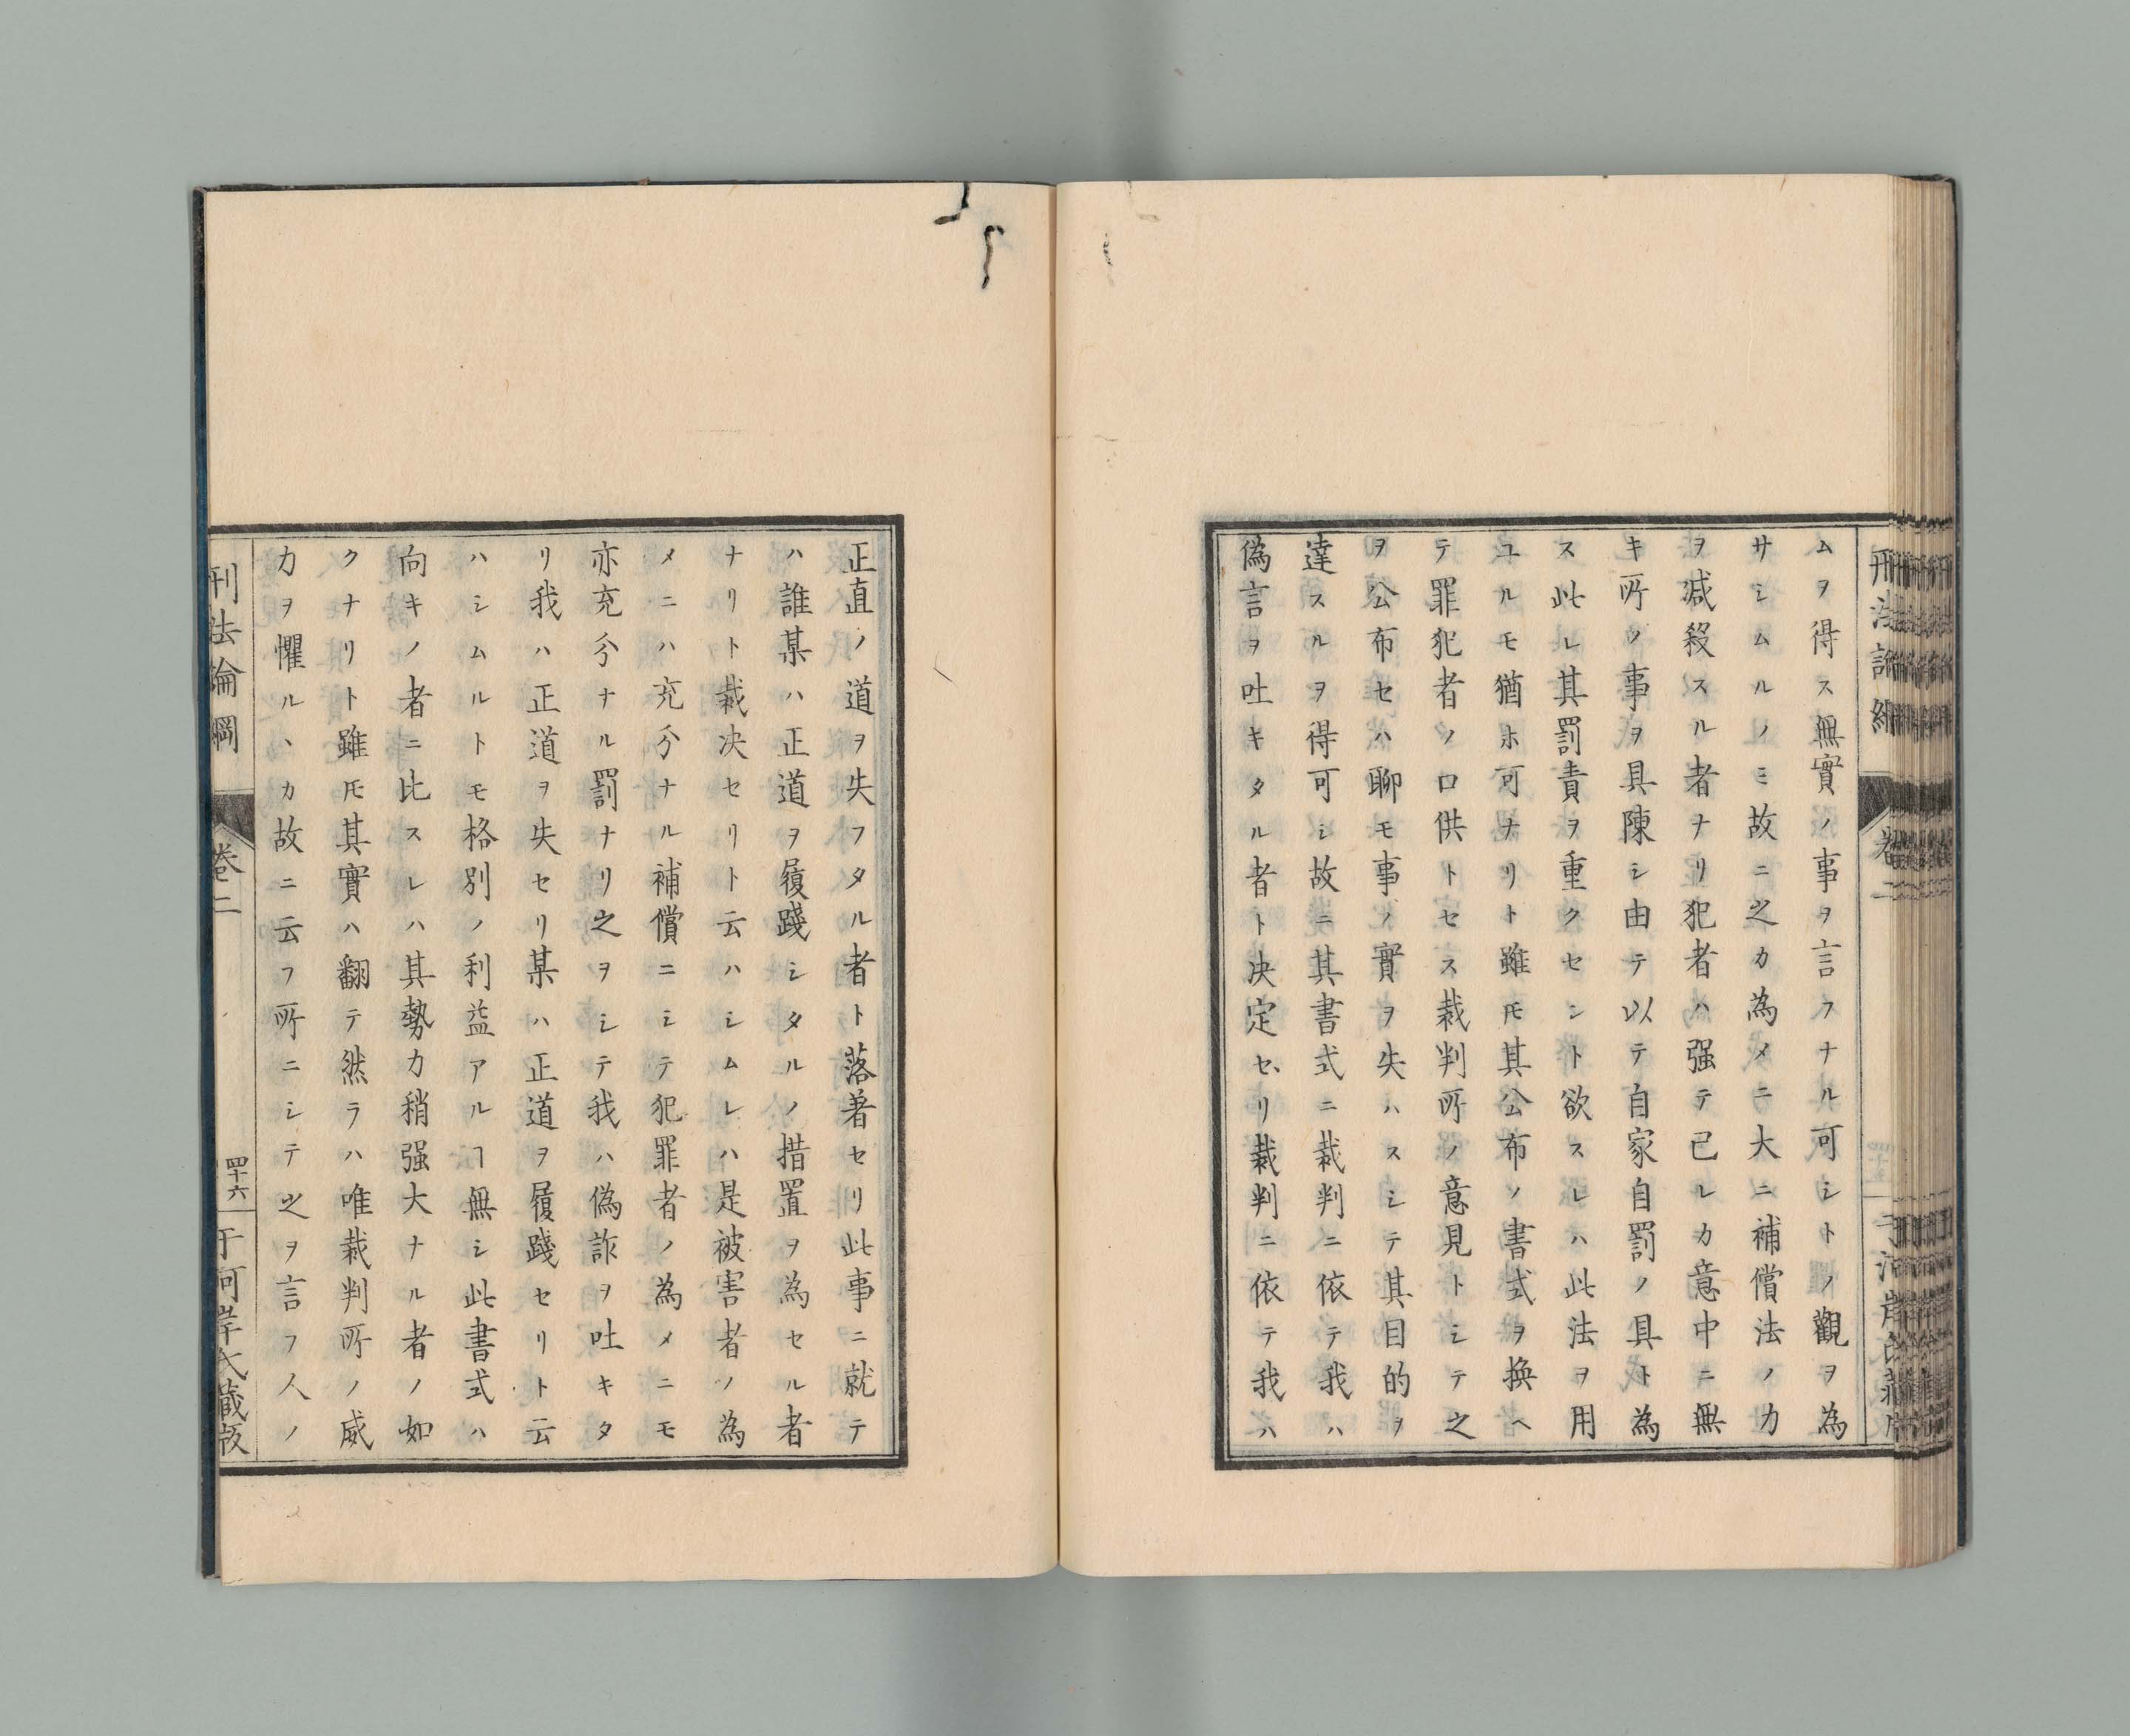 ムヲ得ス無實ノ事ヲ言フナル可シトノ觀ヲ為
サシムルノミ故ニ之カ為メニ大ニ補償法ノ力
ヲ减殺スル者ナリ犯者ハ强テ已レカ意中ニ無
キ所ノ事ヲ具陳シ由テ以テ自家自罰ノ具ト為
ス此レ其罰責ヲ重クセント欲スレハ此法ヲ用
ユルモ猶ホ可ナリト雖𪜈其公布ノ書式ヲ換ヘ
テ罪犯者ノ口供トセス裁判所ノ意見トシテ之
ヲ公布セハ聊モ事ノ實ヲ失ハスシテ其目的ヲ
達スルヲ得可シ故ニ其書式ニ裁判ニ依テ我ハ
偽言ヲ吐キタル者ト决定セリ裁判ニ依テ我ハ
正直ノ道ヲ失フタル者ト落著セリ此事ニ就テ
ハ誰某ハ正道ヲ履踐シタルノ措置ヲ為セル者
ナリト裁决セリト云ハシムレハ是被害者ノ為
メニハ充分ナル補償ニシテ犯罪者ノ為メニモ
亦充分ナル罰ナリ之ヲシテ我ハ偽詐ヲ吐キタ
リ我ハ正道ヲ失セリ某ハ正道ヲ履踐セリト云
ハシムルトモ格別ノ利益アルヿ無シ此書式ハ
向キノ者ニ比スレハ其勢力稍强大ナル者ノ如
クナリト雖𪜈其實ハ翻テ然ラハ唯裁判所ノ威
力ヲ懼ルヽカ故ニ云フ所ニシテ之ヲ言フ人ノ
刑法論綱
卷二
四十六
于河岸氏藏版